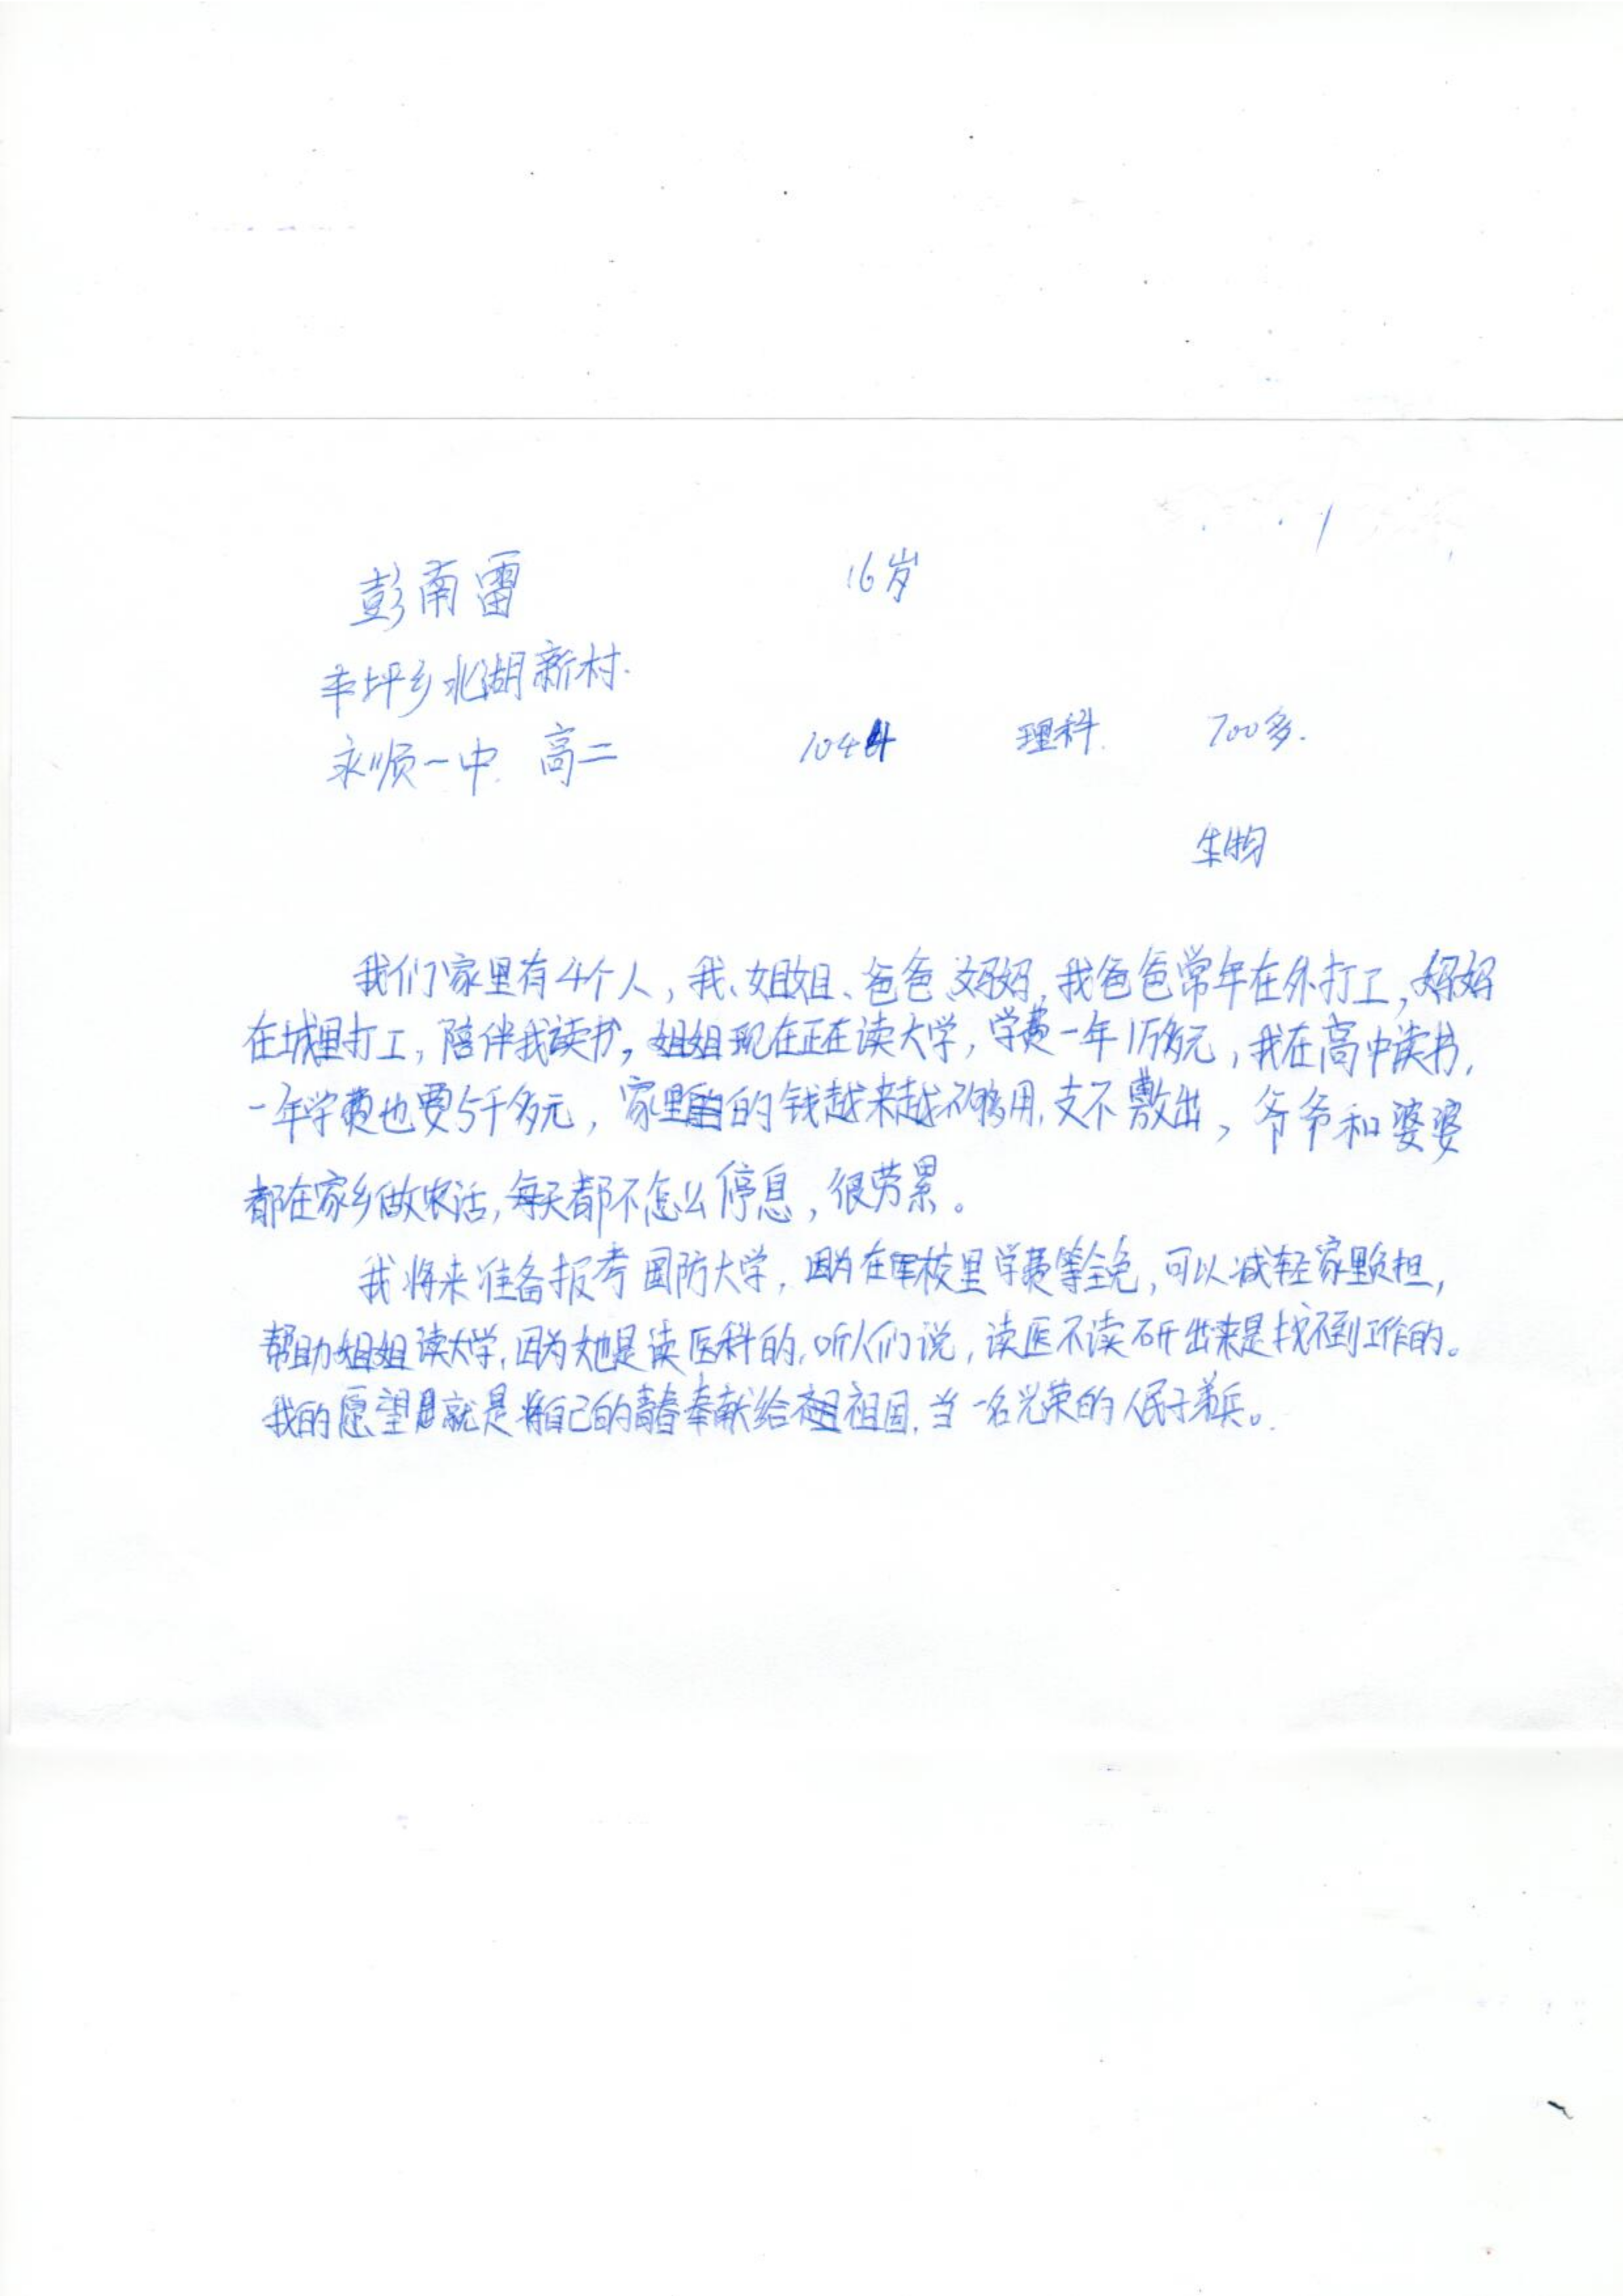 彭南雷 16岁
丰坪乡北湖新村.
永顺一中. 高二 1044 理科. 700多.
生物
我们家里有4个人,我、姐姐、爸爸、妈妈,我爸爸常年在外打工,妈妈
在城里打工,陪伴我读书,姐姐现在正在读大学,学费一年1万多元,我在高中读书,
一年学费也要5千多元,家里的钱越来越不够用,支不敷出,爷爷和婆婆
都在家乡做农活,每天都不怎么停息,很劳累。
我将来准备报考国防大学,因为在军校里学费等全免,可以减轻家里负担,
帮助姐姐读大学,因为她是读医科的,听人们说,读医不读研出来是找不到工作的。
我的愿望就是将自己的青春奉献给祖国,当一名光荣的人民子弟兵。